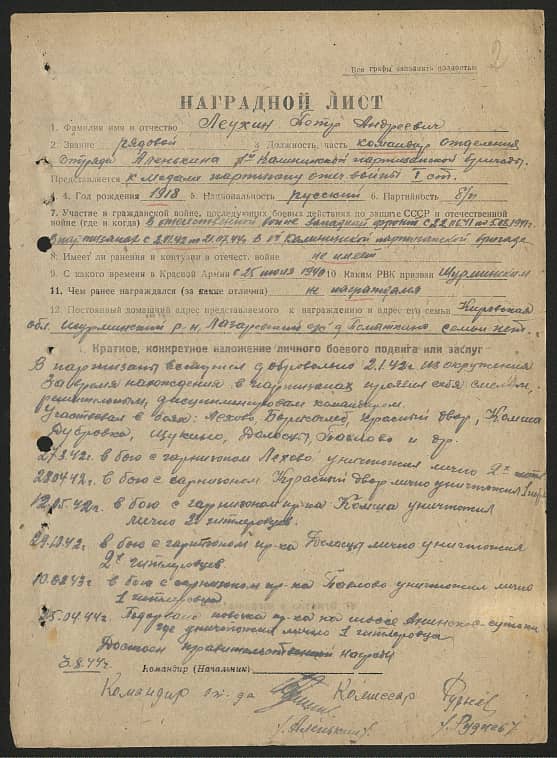 2
Все графы заполнять полностью
НАГРАДНОЙ ЛИСТ
1. Фамилия имя и отчество Леухин Петр Андреевич
2. Звание рядовой 3 Должность, часть командир отделения
отряда Аленькина 1ой Калининской партизанской бригады
Представляется к медали партизану отеч. войны I ст.
4. Год рождения 1918 5. Национальность русский 6. Партийность б/п
7. Участие в гражданской войне, последующих боевых действиях по защите СССР и отечественной
войне (где и когда) В отечественной войне Западный фронт с 22.06.41
В партизанах с В 1й Калининской партизанской бригаде
8. Имеет ли ранения и контузии в отечест. войне не имеет
9. С какого времени в Красной Армии с 25 июля 1940 10 Каким РВК призван Шурминским
11. Чем ранее награждался (за какие отличия) не награждался
12. Постоянный домашний адрес представляемого к награждению и адрес его семьи Кировская
обл. Шурминский р-н, Лазаревский с/с д. семьи нет.
1. Краткое, конкретное изложение личного боевого подвига или заслуг
В партизаны вступил добровольно 2.1.42г из окружения
За время нахождения в партизанах проявил себя смелым,
решительным, дисциплинированным командиром.
Участвовал в боях: Лехово, Красный двор, Комша
Дубровка, Щукино, Долосцы, Павлово и др.
в бою с гарнизоном Лехово уничтожил лично 2х
28.04.42г. в бою с гарнизоном Красный двор лично уничтожил
12.05.42г. в бою с гарнизоном пр-ка Комша уничтожил
лично 2х гитлеровцев.
29.10.42г. в бою с гарнизоном пр-ка Долосцы лично уничтожил
2х гитлеровцев
10.02.43г. в бою с гарнизоном пр-ка Павлово уничтожил лично
1 гитлеровца
25.04.44г. Подорвана повозка пр-ка на шоссе
где уничтожил лично 1 гитлеровца
Достоин правительственной награды
3.8.44г. Командир (Начальник)
Командир от-да Комиссар
/Аленькин/